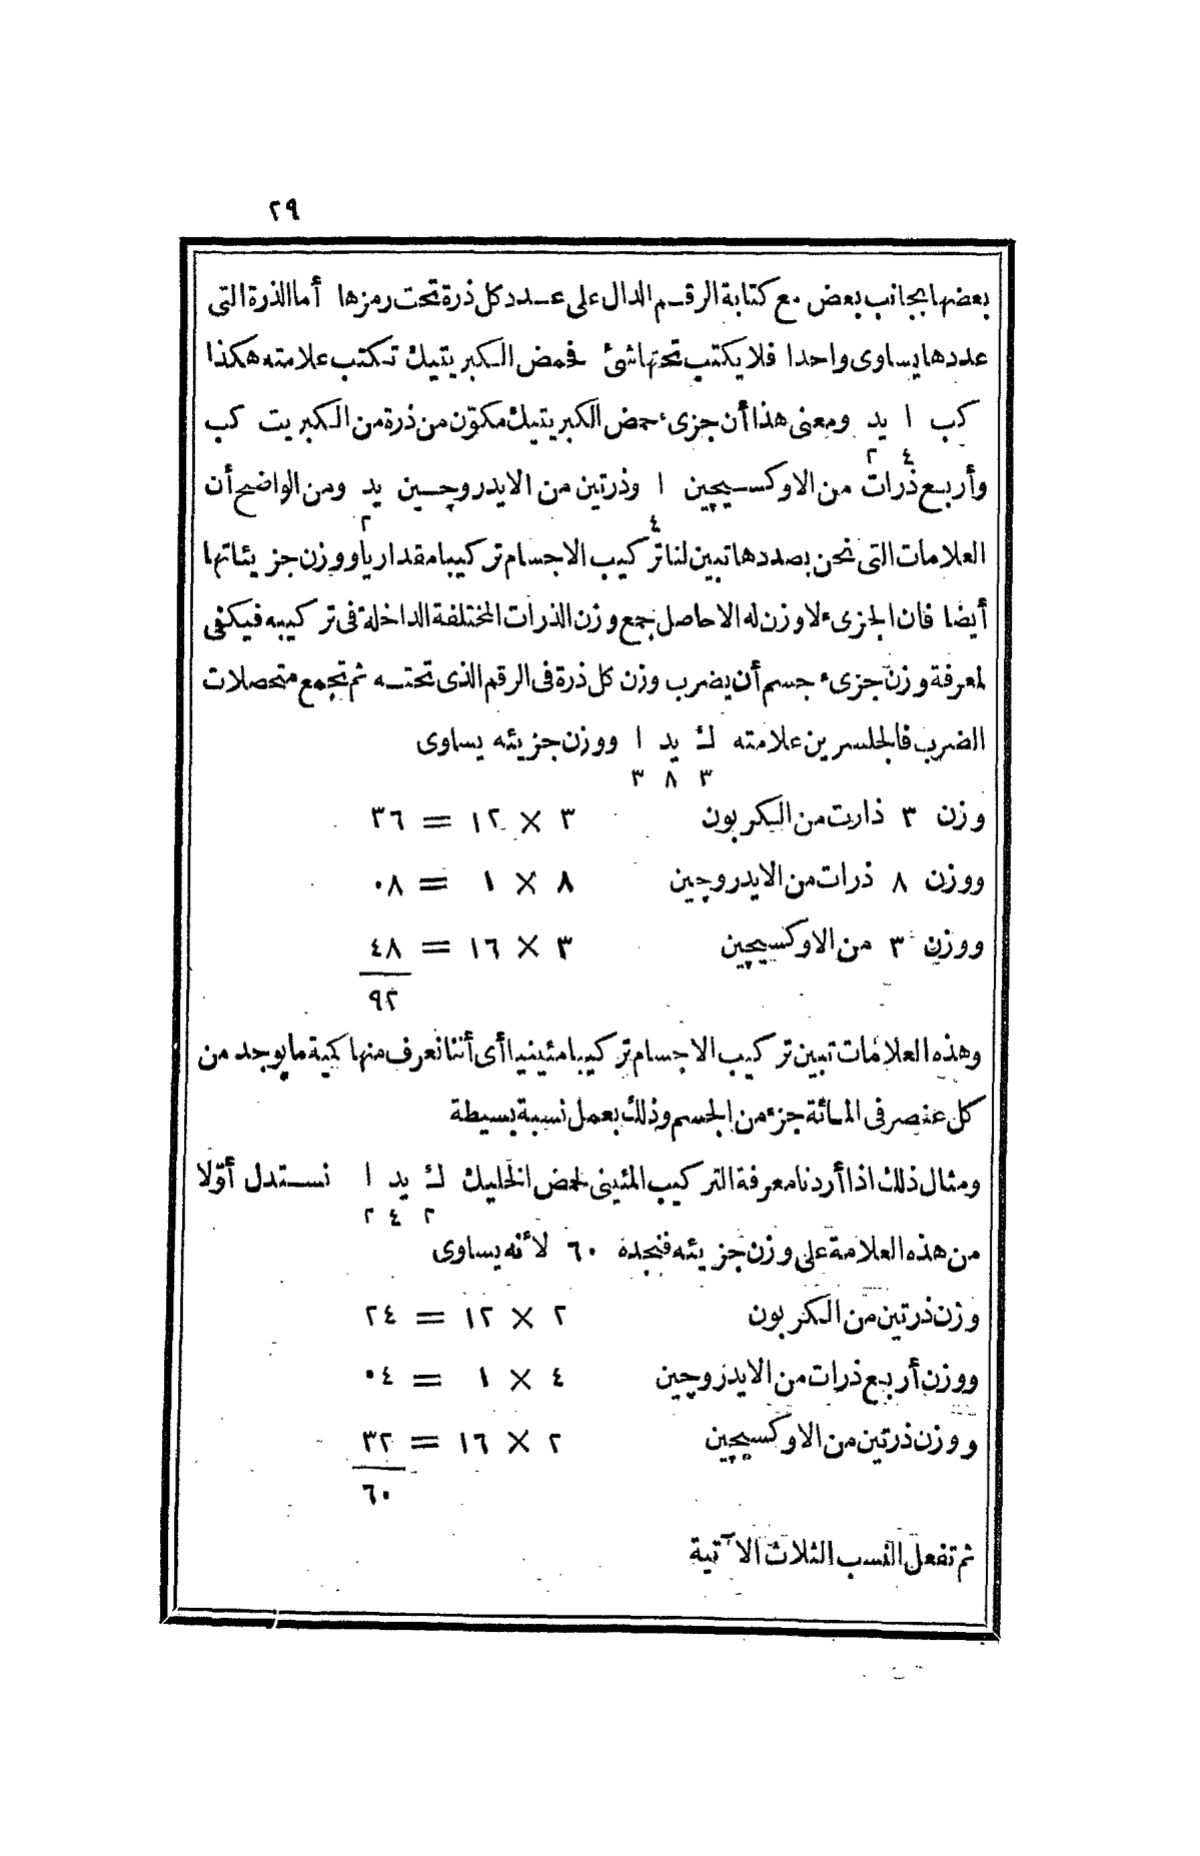 ٢٩
بعضها بجانب بعض مع كتابة الرقم الدال على عدد كل ذرة تحت رمزها أما الذرة التى
عددها يساوى واحدا فلا يكتب تحتها شئ فحمض الكبريتيك تكتب علامته هكذا
كب ا يد ومعنى هذا أن جزىء حمض الكبريتيك مكوّن من ذرة من الكبريت كب
٤ ٢
وأربع ذرات من الاوكسيچين ا وذرتين من الايدروچين يد ومن الواضح أن
٤ ٢
العلامات التى نحن بصددها تبين لنا تركيب الاجسام تركيبا مقداريا ووزن جزيئاتها
أيضا فان الجزىء لا وزن له الا حاصل جمع وزن الذرات المختلفة الداخلة فى تركيبه فيكفى
لمعرفة وزن جزىء جسم أن يضرب وزن كل ذرة فى الرقم الذى تحته ثم تجمع متحصلات
الضرب فالجلسرين علامته ك يد ا ووزن جزيئه يساوى
٣ ٨ ٣
وزن ٣ ذارت من الكربون ٣ × ١٢ = ٣٦
ووزن ٨ ذرات من الايدروچين ٨ × ١ = ٠٨
ووزن ٣ من الاوكسيچين ٣ × ١٦ = ٤٨
٩٢
وهذه العلامات تبين تركيب الاجسام تركيبا مئينيا أى أننا نعرف منها كمية ما يوجد من
كل عنصر فى المائة جزء من الجسم وذلك بعمل نسبة بسيطة
ومثال ذلك اذا أردنا معرفة التركيب المئينى لحمض الخليك ك يد ا نستدل أوّلا
٢ ٤ ٢
من هذه العلامة على وزن جزيئه فنجده ٦٠ لأنه يساوى
وزن ذرتين من الكربون ٢ × ١٢ = ٢٤
ووزن أربع ذرات من الايدروچين ٤ × ١ = ٠٤
ووزن ذرتين من الاوكسيچين ٢ × ١٦ = ٣٢
٦٠
ثم تفعل النسب الثلاث الآتية